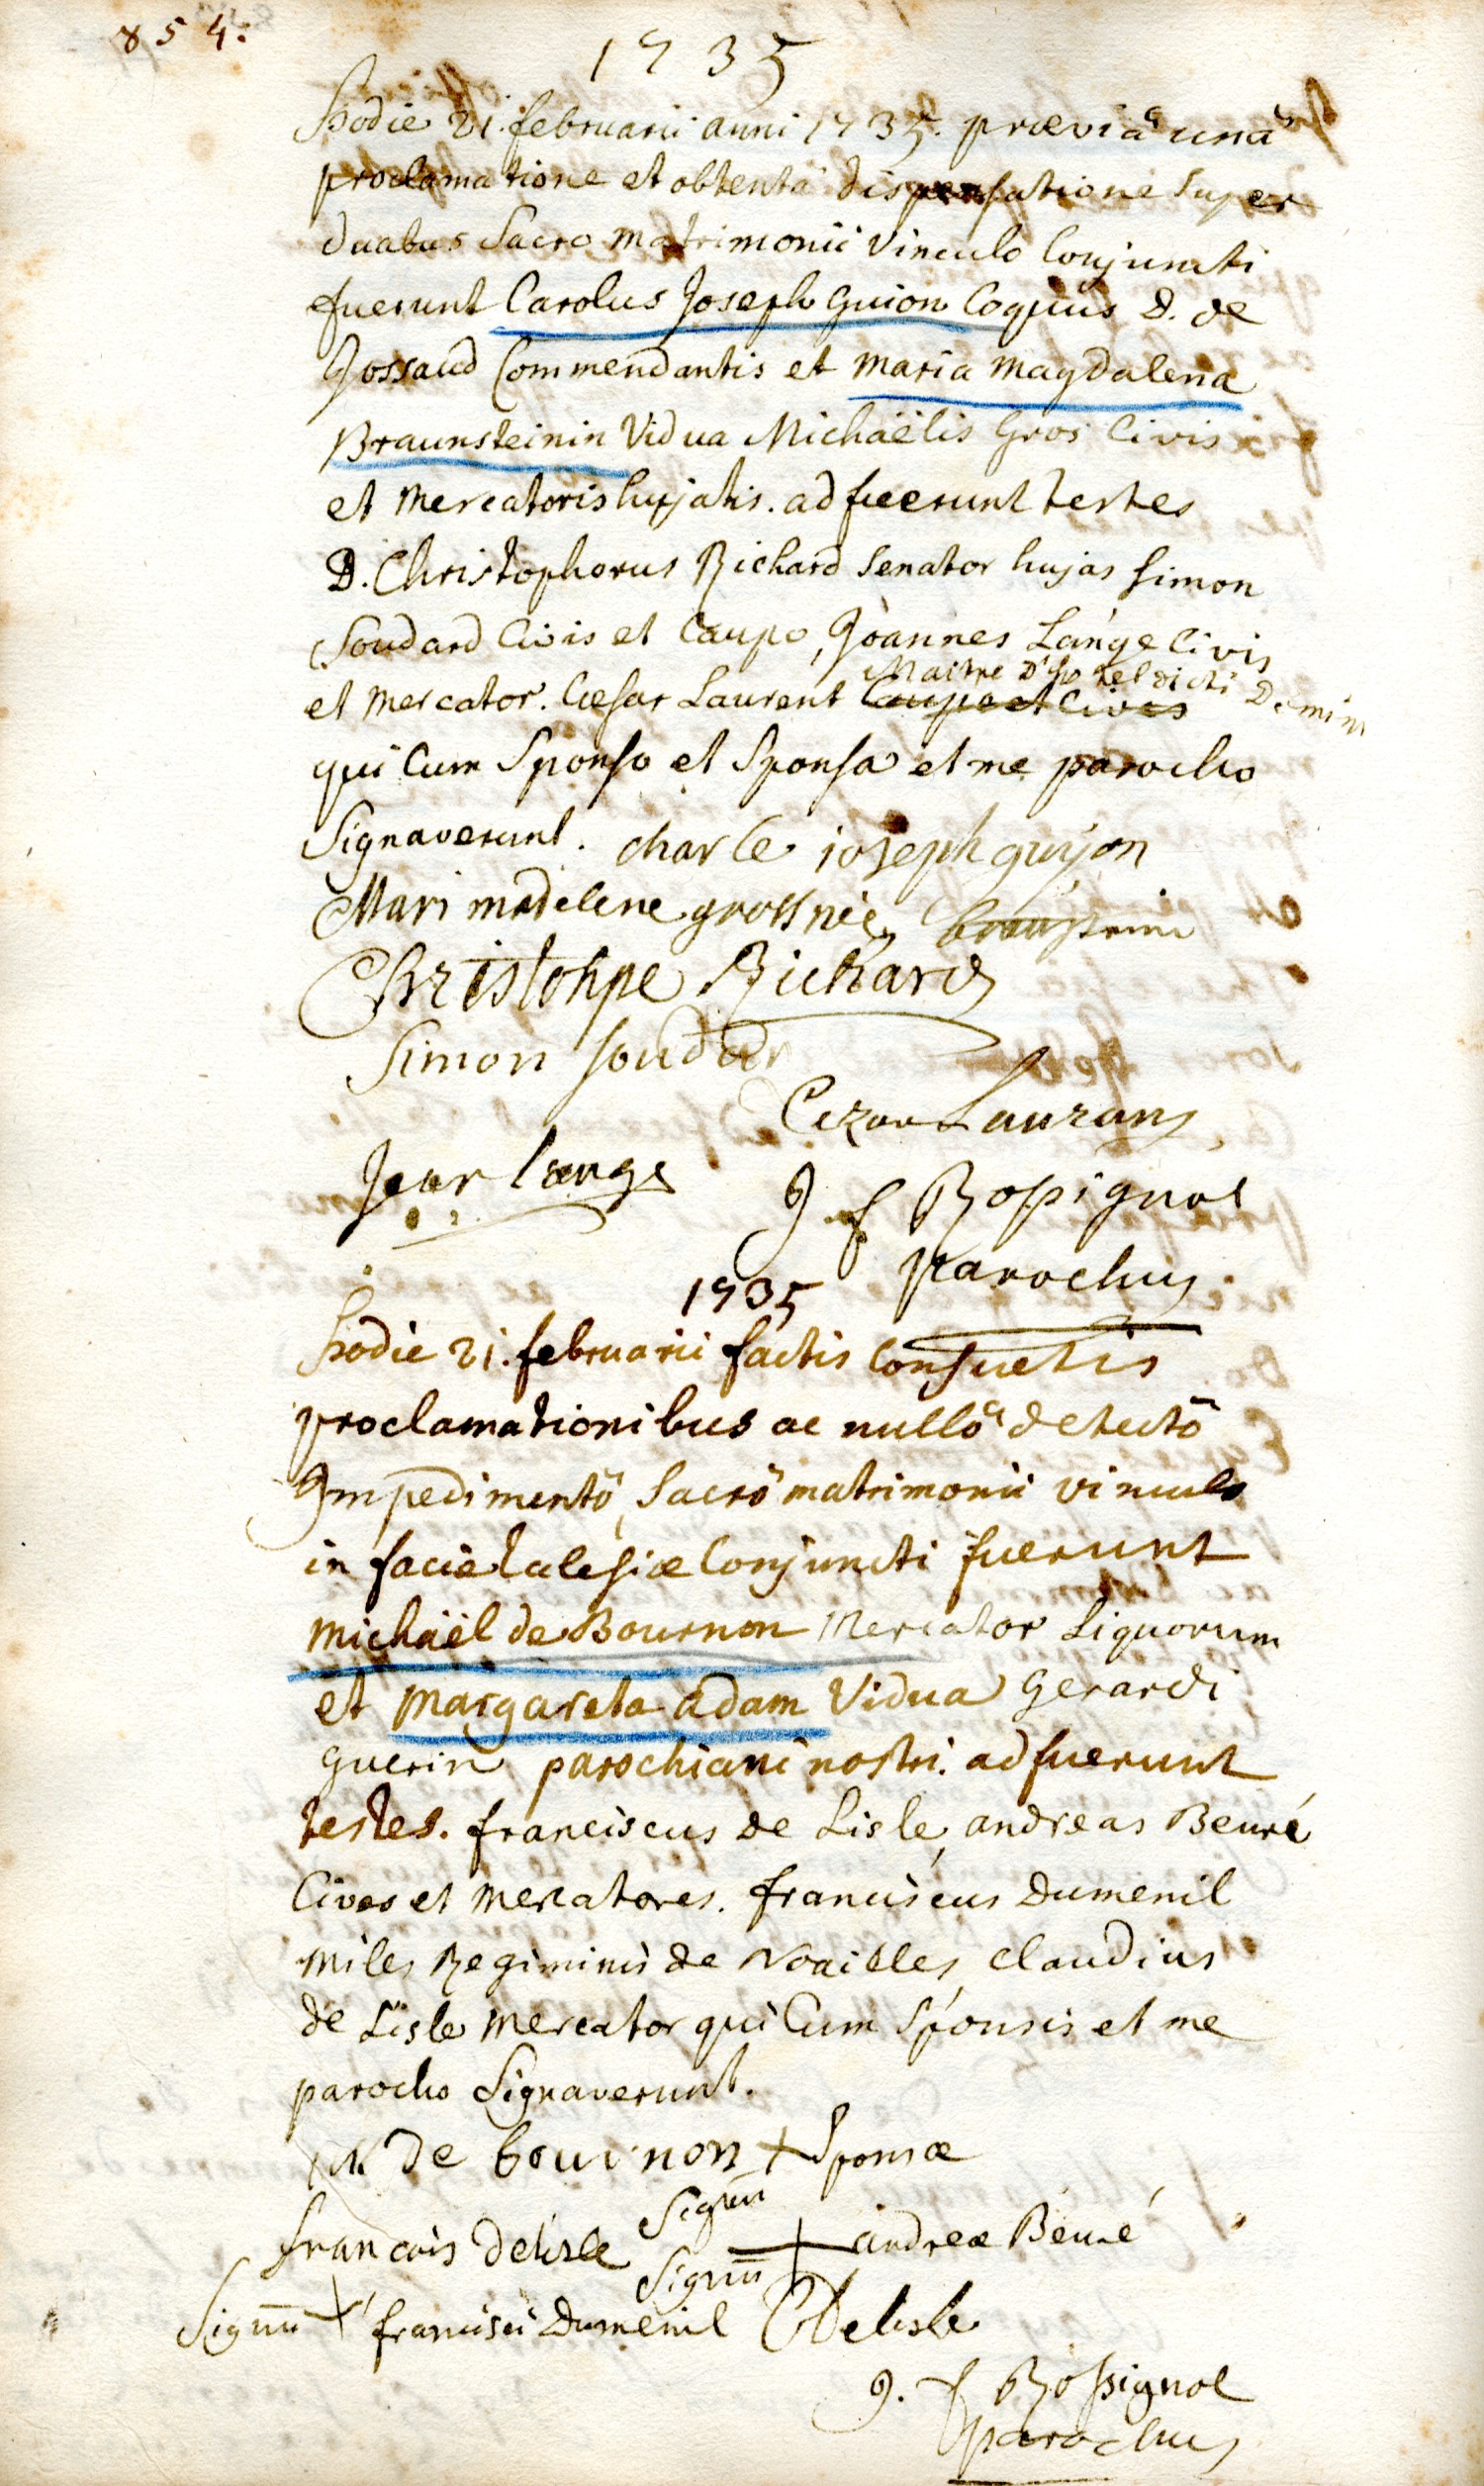 854.
1735
Hodie 21. februarii anni 1735. prœviâ unâ
proclamatione et obtentâ dispensatione super
duabus Sacro matrimonii Vinculo Conjuncti
fuerunt Carolus Joseph Guion Coquus D. de
Jossaud Commendantis et Maria Magdalena
Braunsteinin Vidua Michaëlis Gros Civis
et Mercatoris hujatis. adfuerunt testes
D. Christophorus Richard Senator hujas Simon
Soudard Civis et Caupo, Joannes Lange Civis
Maitre D'hotel dicti Domini
et Mercator. Cœsar Laurent Caupo et Cives
qui Cum Sponso et Sponsa et me parocho
Signaverunt. charle ioseph guyon
Mari madelene gross née
Christohpe Richard
Simon soudar
Cezar Laurans
Jean lange
J f Rossignol
parochus
1735
Hodie 21. februarii factis Consuetis
proclamationibus ac nullô detectô
Impedimentô, Sacrô matrimonii vinculo
in facie Ecclesiœ Conjuncti fuerunt
Michaël de Bournon Mercator Liquorum
et Margareta Adam Vidua Gerardi
Guerin parochiani nostri. adfuerunt
testes. franciscus de Lisle, andreas Beuré
Cives et Mercatores. franciscus Dumenil
Miles Regiminis de Noailles, Claudius
de Lisle Mercator qui Cum Sponsis et me
parocho Signaverunt.
M de bournon + Sponsœ
Signũ
francois Delisle + andreœ Beuré
Signũ
Signũ + francisci Dumenil C Delisle
J. f Rossignol
parochus